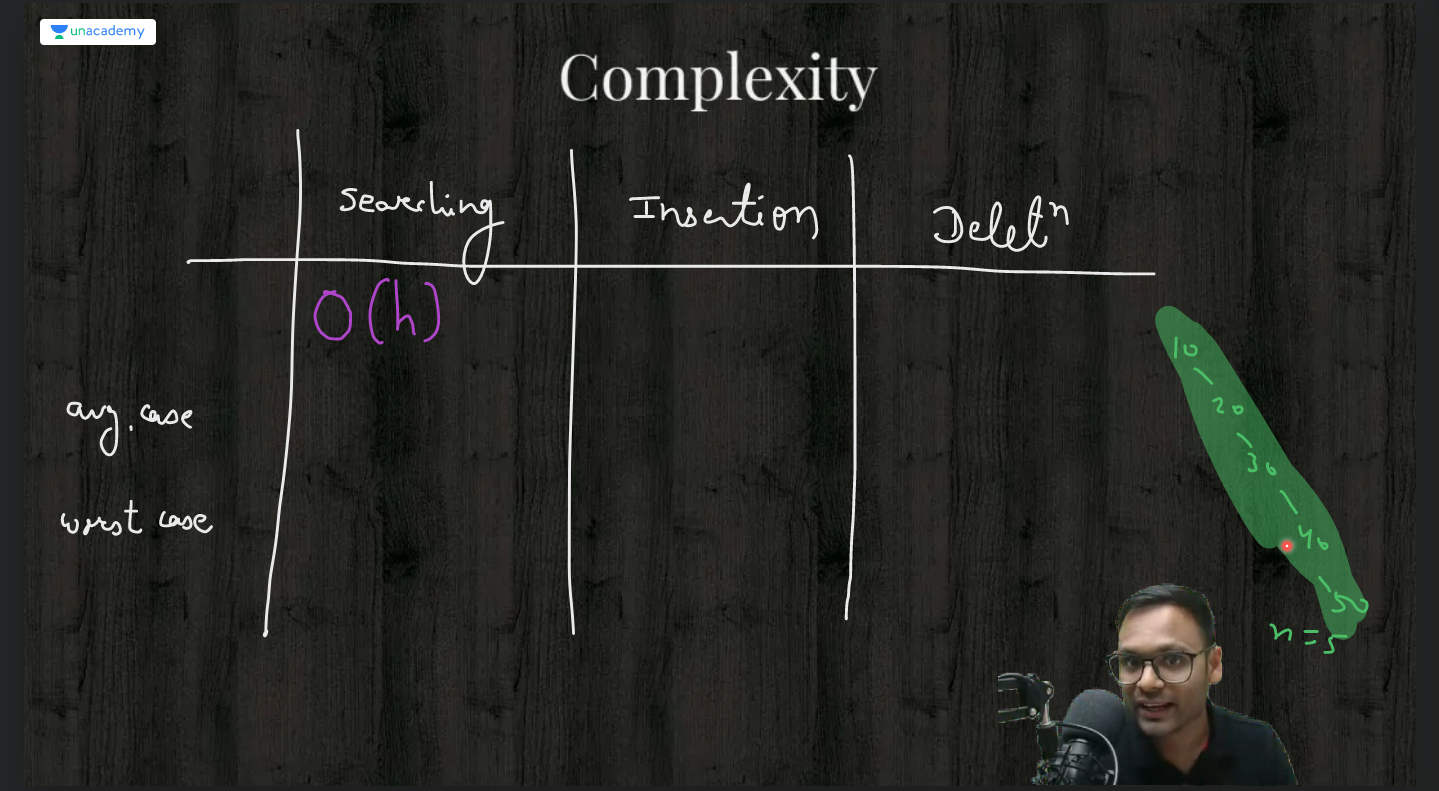 unacademy
Complexity
Searching Insertion Deletⁿ
O(h)
10
20
avg. case
30
worst case
40
50
n = 5